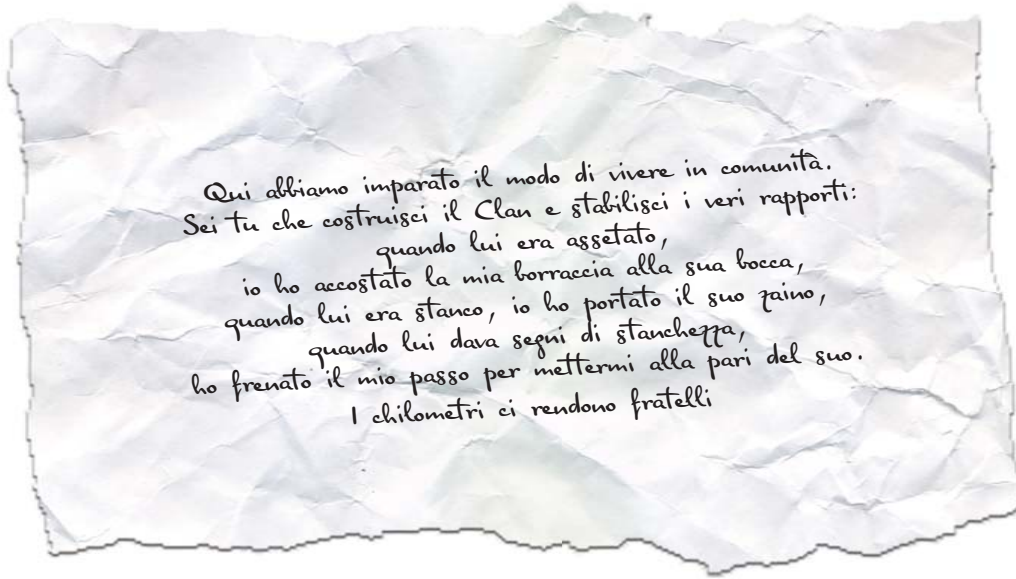 Qui abbiamo imparato il modo di vivere in comunità.
Sei tu che costruisci il Clan e stabilisci i veri rapporti:
quando lui era assetato,
io ho accostato la mia borraccia alla sua bocca,
quando lui era stanco, io ho portato il suo zaino,
quando lui dava segni di stanchezza,
ho frenato il mio passo per mettermi alla pari del suo.
I chilometri ci rendono fratelli